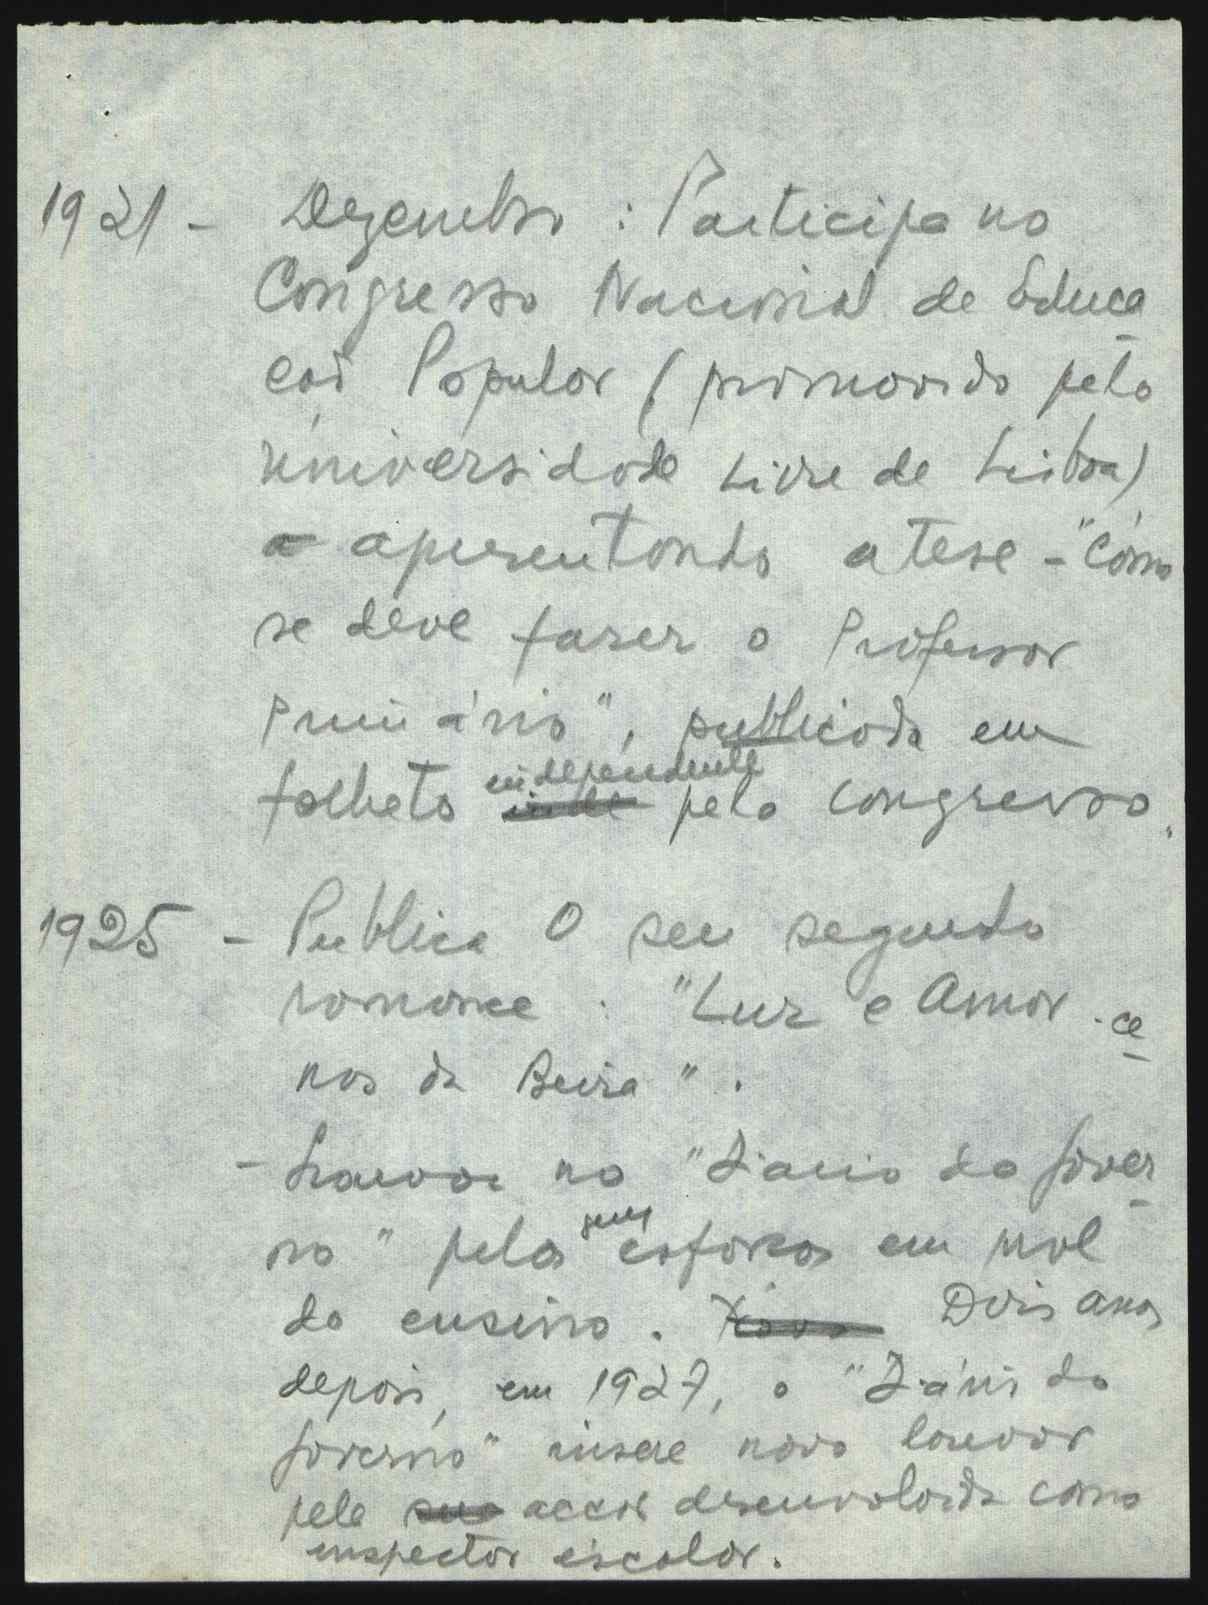 1921 - Dezembro : Participa no
Congresso Nacional de Educa
ção Popular (promovido pela
Universidade Livre de Lisboa)
apresentando a tese - "Como
se deve fazer o Professor
Primário", publicada em
folheto independente pelo congresso.
1925 - Publica o seu segundo
romance : "Luz e Amor - ce
nas da Beira".
- Louvor no "Diario do Gover
no" pelos seus esforços em prol
do ensino. Dois anos
depois, em 1927, o "Diário do
Governo" insere novo louvor
pela acção desenvolvida como
inspector escolar.